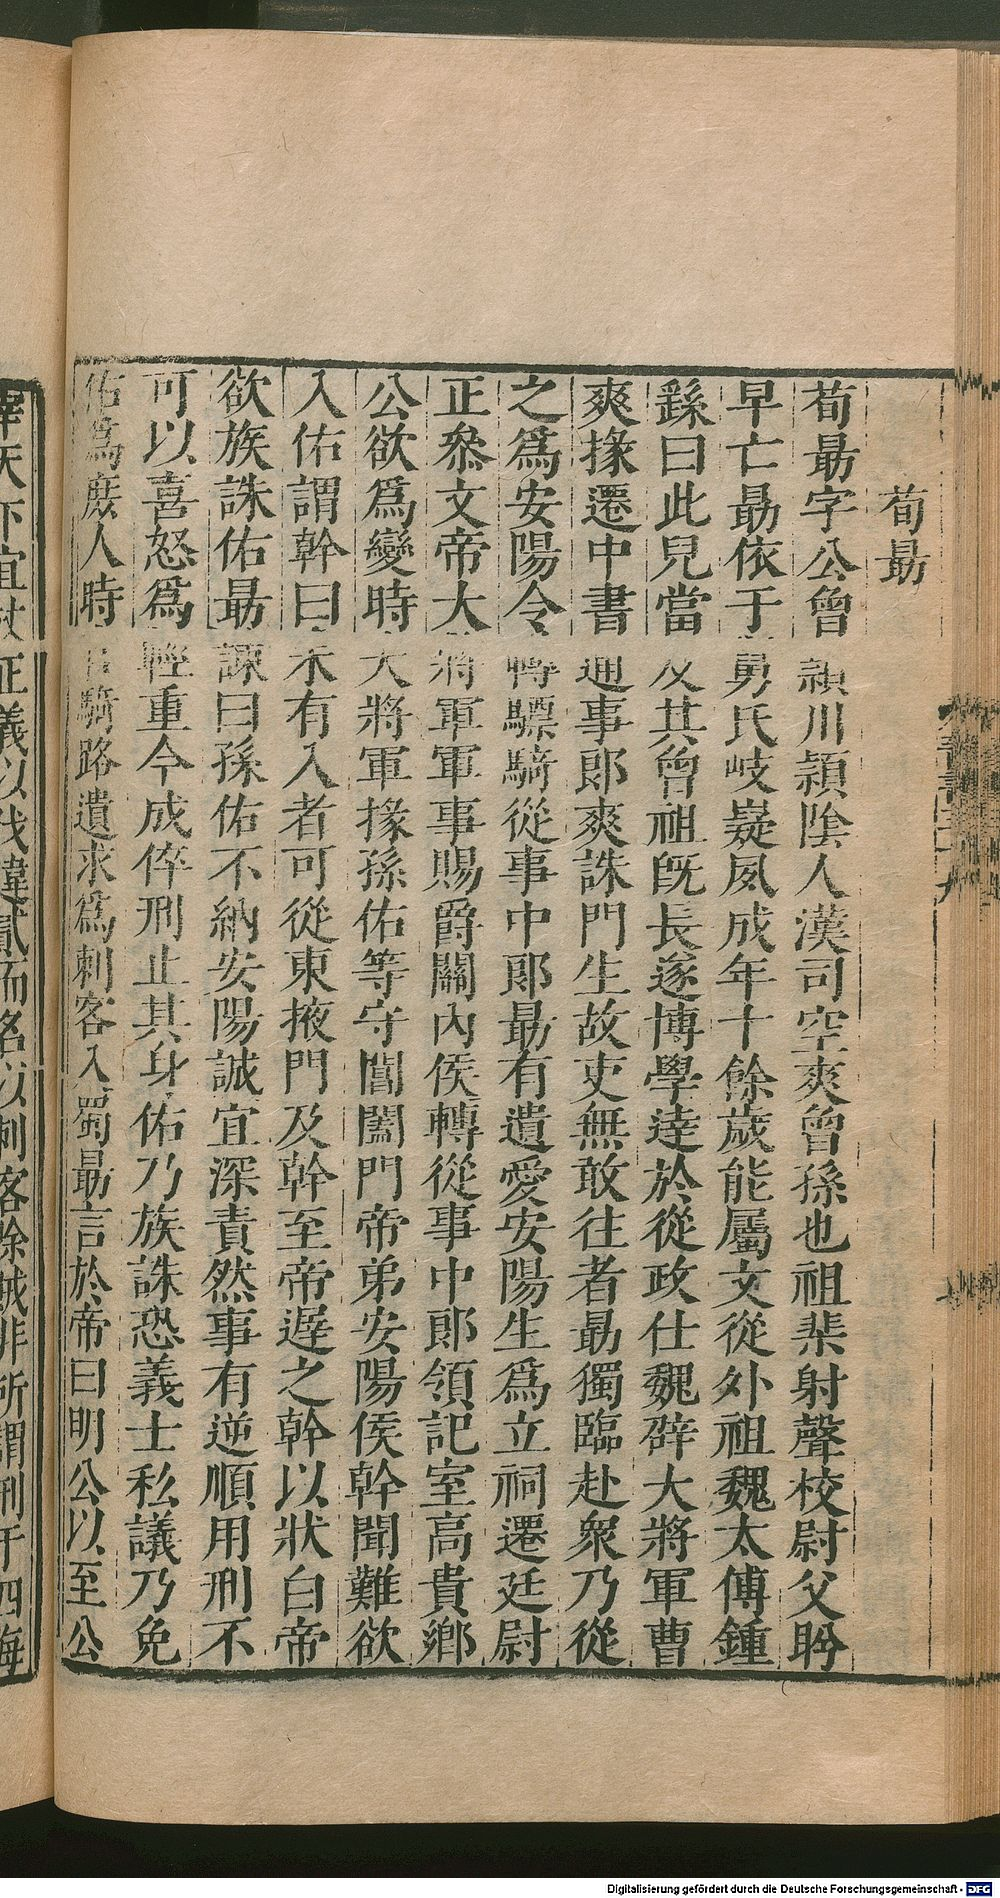 荀勗
荀勗字公曾潁川潁陰人漢司空爽曾孫也祖棐射聲校尉父肸
早亡勗依于舅氏岐嶷夙成年十餘歲能屬文從外祖魏太傅鍾
繇曰此兒當及其曾祖旣長遂博學逹於從政仕魏辟大將軍曹
爽掾遷中書通事郎爽誅門生故吏無敢往者勗獨臨赴衆乃從
之爲安陽令轉驃騎從事中郎勗有遺愛安陽生爲立祠遷廷尉
正叅文帝大將軍軍事賜爵關內侯轉從事中郎領記室高貴鄉
公欲爲變時大將軍掾孫佑等守閶闔門帝弟安陽侯幹聞難欲
入佑謂幹曰未有入者可從東掖門及幹至帝遲之幹以狀白帝
欲族誅佑勗諫曰孫佑不納安陽誠宜深責然事有逆順用刑不
可以喜怒爲輕重今成倅刑止其身佑乃族誅恐義士私議乃免
佑爲庶人時官騎路遺求爲刺客入蜀勗言於帝曰明公以至公
宰天下宜杖正義以伐違貳而名以刺客除賊非所謂刑于四海
Digitalisierung gefördert durch die Deutsche Forschungsgemeinschaft - DFG